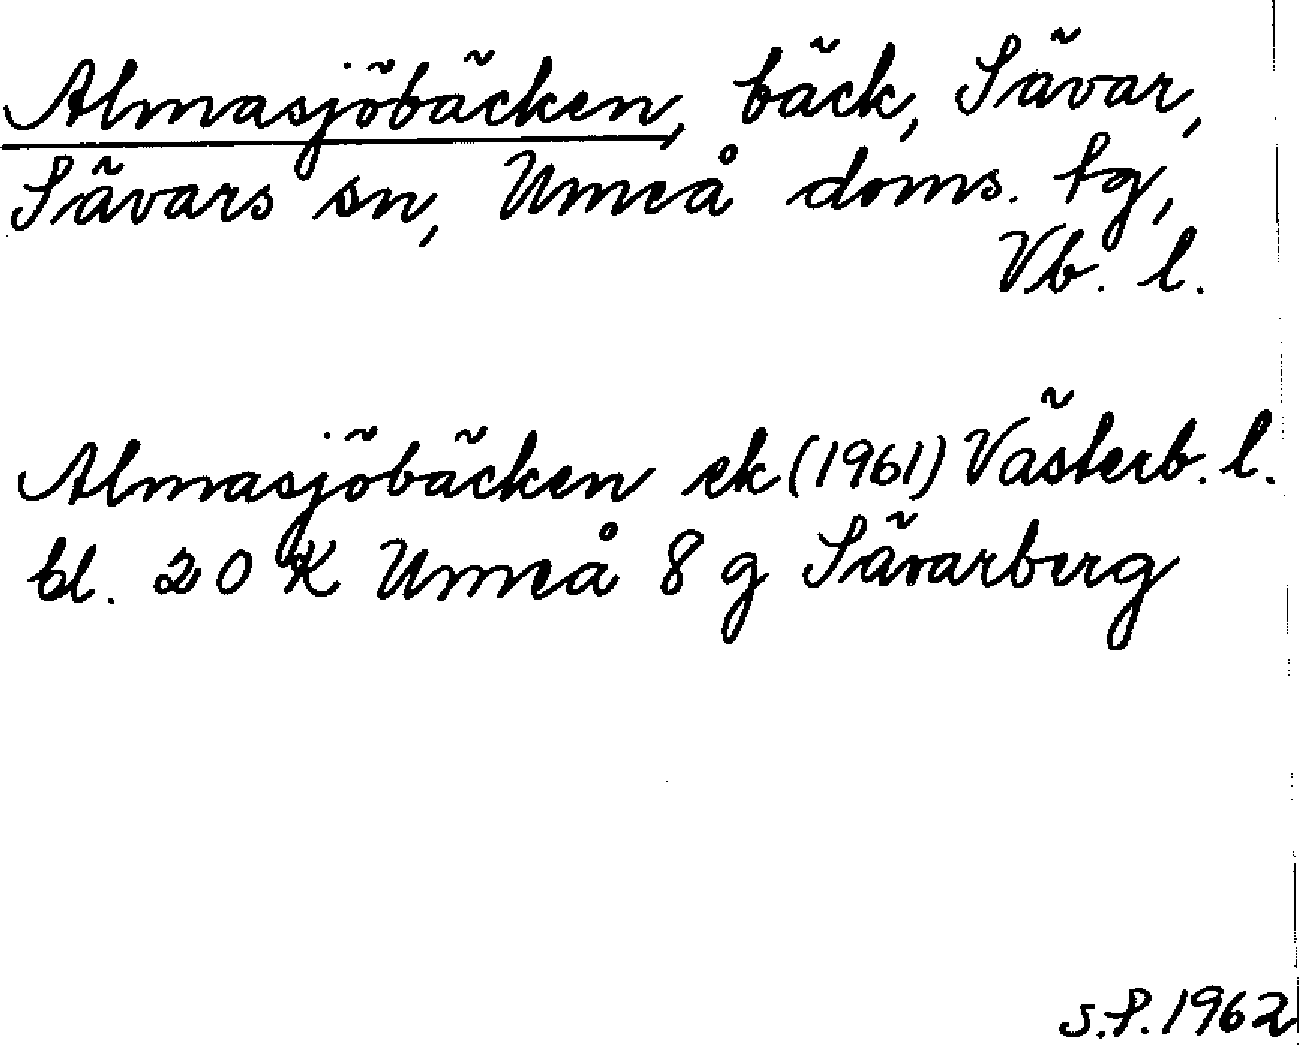 Almasjöbäcken, bäck, Sävar,
Sävars sn, Umeå doms. tg,
Vb. l.
Almasjöbäcken ek (1961) Västerb. l.
bl. 20 K Umeå 8 g Sävarberg
S.P. 1962